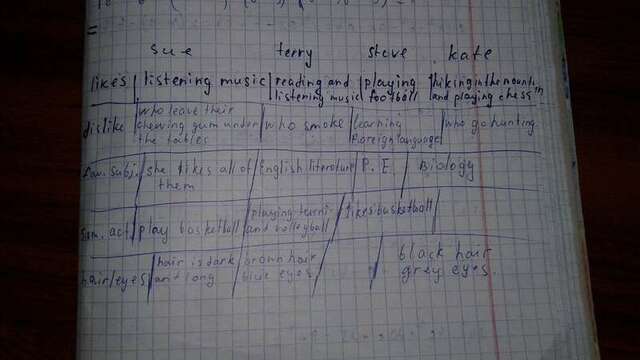 sue terry steve kate
likes listening music reading and playing hiking in the mount
listening music football and playing chess
dislike who leave their
chewing gum under who smoke learning who go hunting.
the tables foreign language
fav. subj. she likes all of English literature P. E. Biology
them
play basketball playing tennis likes basketball
and volleyball
hair/eyes hair is dark brown hair black hair
and long blue eyes grey eyes.